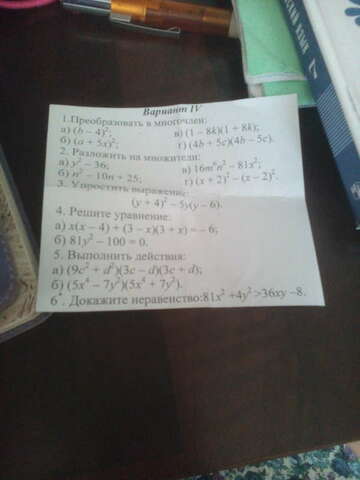 Вариант IV
1.Преобразовать в многочлен:
а) (b – 4)²; в) (1 – 8k)(1 + 8k);
б) (a + 5x)²; г) (4b + 5c)(4b – 5c).
2. Разложить на множители:
а) y² – 36; в) 16m⁶n² – 81x²;
б) n² – 10n + 25; г) (x + 2)² – (x – 2)².
3. Упростить выражение:
(y + 4)² – 5y(y – 6).
4. Решите уравнение:
а) x(x – 4) + (3 – x)(3 + x) = – 6;
б) 81y² – 100 = 0.
5. Выполнить действия:
а) (9c² + d²)(3c – d)(3c + d);
б) (5x⁴ – 7y²)(5x⁴ + 7y²).
6*. Докажите неравенство:81x² +4y² >36xy –8.